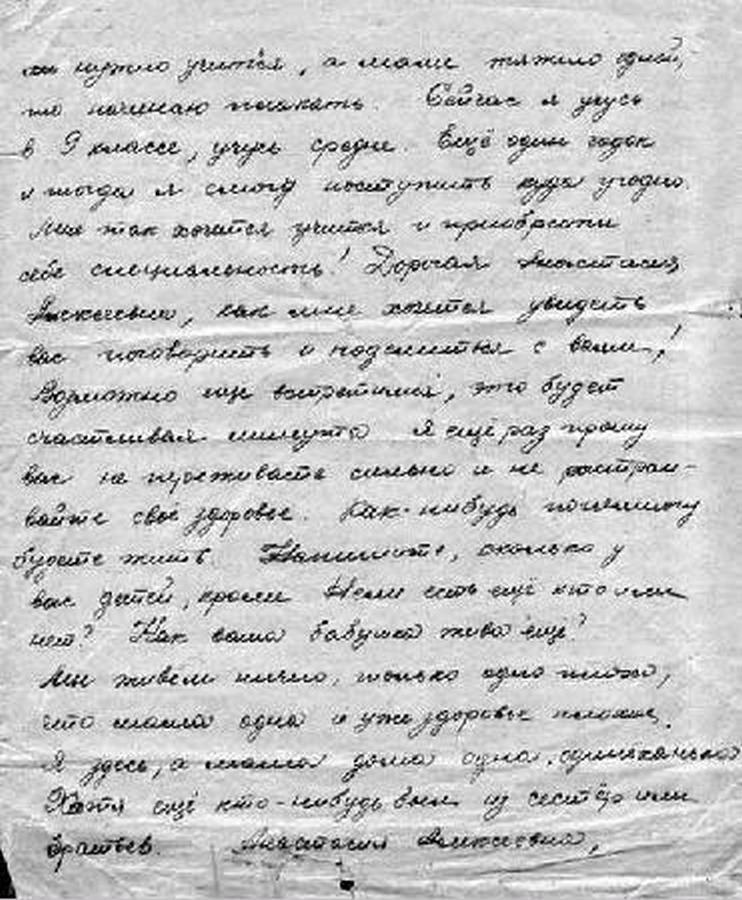 нужно учится, а маме тяжело одной,
то начинаю плакать. Сейчас я учусь
в 9 классе, учусь средне. Ещё один годок
и тогда я смогу поступить куда угодно.
Мне так хочется учится и приобрести
себе специальность! Дорогая Анастасия
Алексеевна, как мне хочется увидеть
вас поговорить и поделиться с вами,!
Возможно ещё встретимся, это будет
счастливая минута Я ещё раз прошу
вас не переживайте сильно и не растраи-
вайте своё здоровье. Как-нибудь
будете жить. Напишите, сколько у
вас детей, кроме Нели есть ещё кто или
нет? Как ваша бабушка жива ещё?
Мы живём ничего, только одно плохо,
что мама одна и уже здоровье плохое.
Я здесь, а мама дома одна, одинёшенька
Хотя ещё кто-нибудь был из сестёр или
братьев. Анастасия Алексеевна,